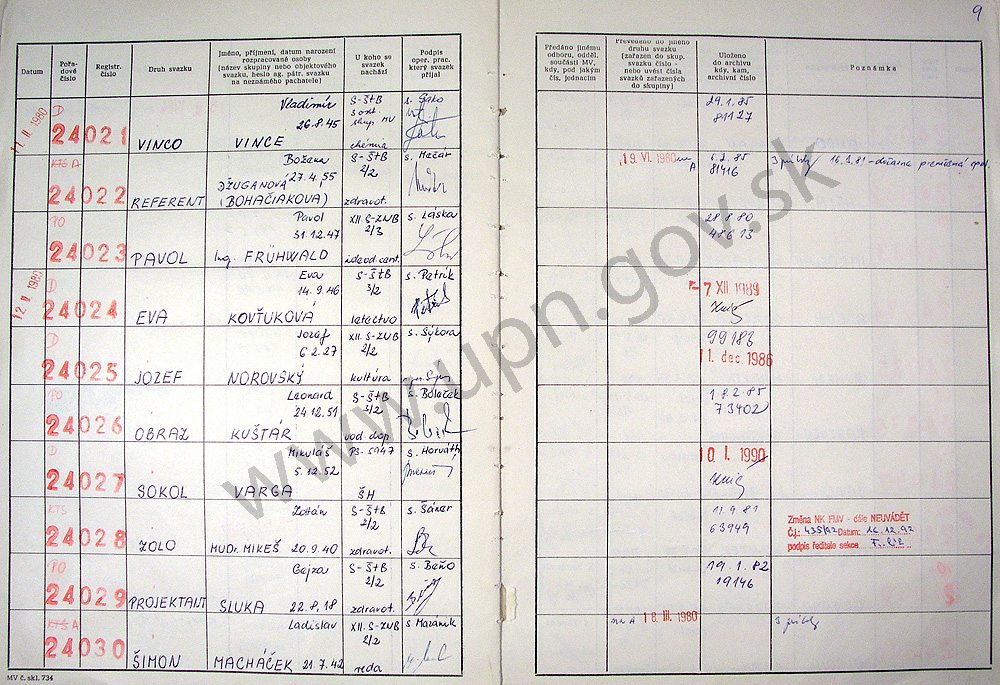 9
Datum
Pořadové číslo
Registr. číslo
Druh svazku
Jméno, příjmení, datum narození
rozpracované osoby
(název skupiny nebo objektového
svazku, heslo ag. pátr. svazku
na neznámého pachatele)
U koho se
svazek
nachází
Podpis
oper. prac.
který svazek
přijal
Předáno jinému
odboru, odděl.
součásti MV,
kdy, pod jakým
čís. jednacím
Převedeno do jiného
druhu svazku
(zařazen do skup.
svazku číslo -
nebo uvést čísla
svazků zařazených
do skupiny)
Uloženo
do archivu
kdy, kam,
archivní číslo
Poznámka
11. II 1980
D
24021
VINCO
Vladimír
26.8.45
VINCE
S-ŠtB
skup. MV
chémia
29.1.85
81127
KTS A
24022
REFERENT
Božena
27.4.55
DŽUGANOVÁ
(BOHAČIAKOVA)
S-ŠtB
2/2
zdravot.
s. Mačár
19. VI. 1980 na A
6.2.85
81416
3 príbehy
PO
24023
PAVOL
Pavol
31.12.47
Ing. FRÜHWALD
XII. S-ZNB
2/3
ideod. cent.
s. Láska
28.8.80
48613
12. II 1980
D
24024
EVA
Eva
14.9.46
KOVŤUKOVÁ
S-ŠtB
3/2
letectvo
s. Petrík
-7 XII 1989
D
24025
JOZEF
Jozef
6.2.27
NOROVSKÝ
XII. S-ZNB
2/2
kultúra
s. Sýkora
99186
11. dec. 1986
PO
24026
OBRAZ
Leonard
24.12.51
KUŠTÁR
S-ŠtB
3/2
vod. dop.
s. Bolaček
18.2.85
73402
D
24027
SOKOL
Mikuláš
5.12.52
VARGA
PS-5947
ŠH
s. Horváth
10 I. 1990
KTS
24028
ZOLO
Zoltán
MUDr. MIKEŠ 20.9.40
S-ŠtB
2/2
zdravot.
s. Šáner
11.9.81
63949
Změna NK FMV - dále NEUVÁDĚT
Č.j.: 435/92 Datum: 16.12.92
podpis ředitele sekce
PO
24029
PROJEKTANT
Gejza
SLUKA 22.8.18
S-ŠtB
2/2
zdravot.
s. Beňo
19.1.82
19146
KTS A
24030
ŠIMON
Ladislav
MACHÁČEK 21.7.42
XII. S-ZNB
2/2
reda
s. Mazánik
na A 18. III. 1980
3 príbehy
MV č. skl. 734
www.upn.gov.sk